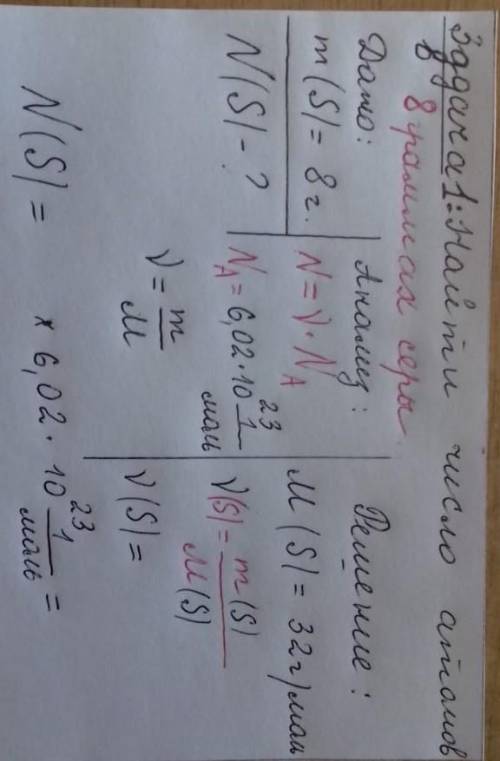 Задача 1: Найти число атомов
в 8 граммах серы.
Дано:
m(S) = 8 г.
N(S) - ?
Анализ:
N = ν · N_A
N_A = 6,02 · 10^23 1/моль
ν = m/M
Решение:
M(S) = 32 г/моль
ν(S) = m(S)/M(S)
ν(S) =
N(S) = * 6,02 · 10^23 1/моль =